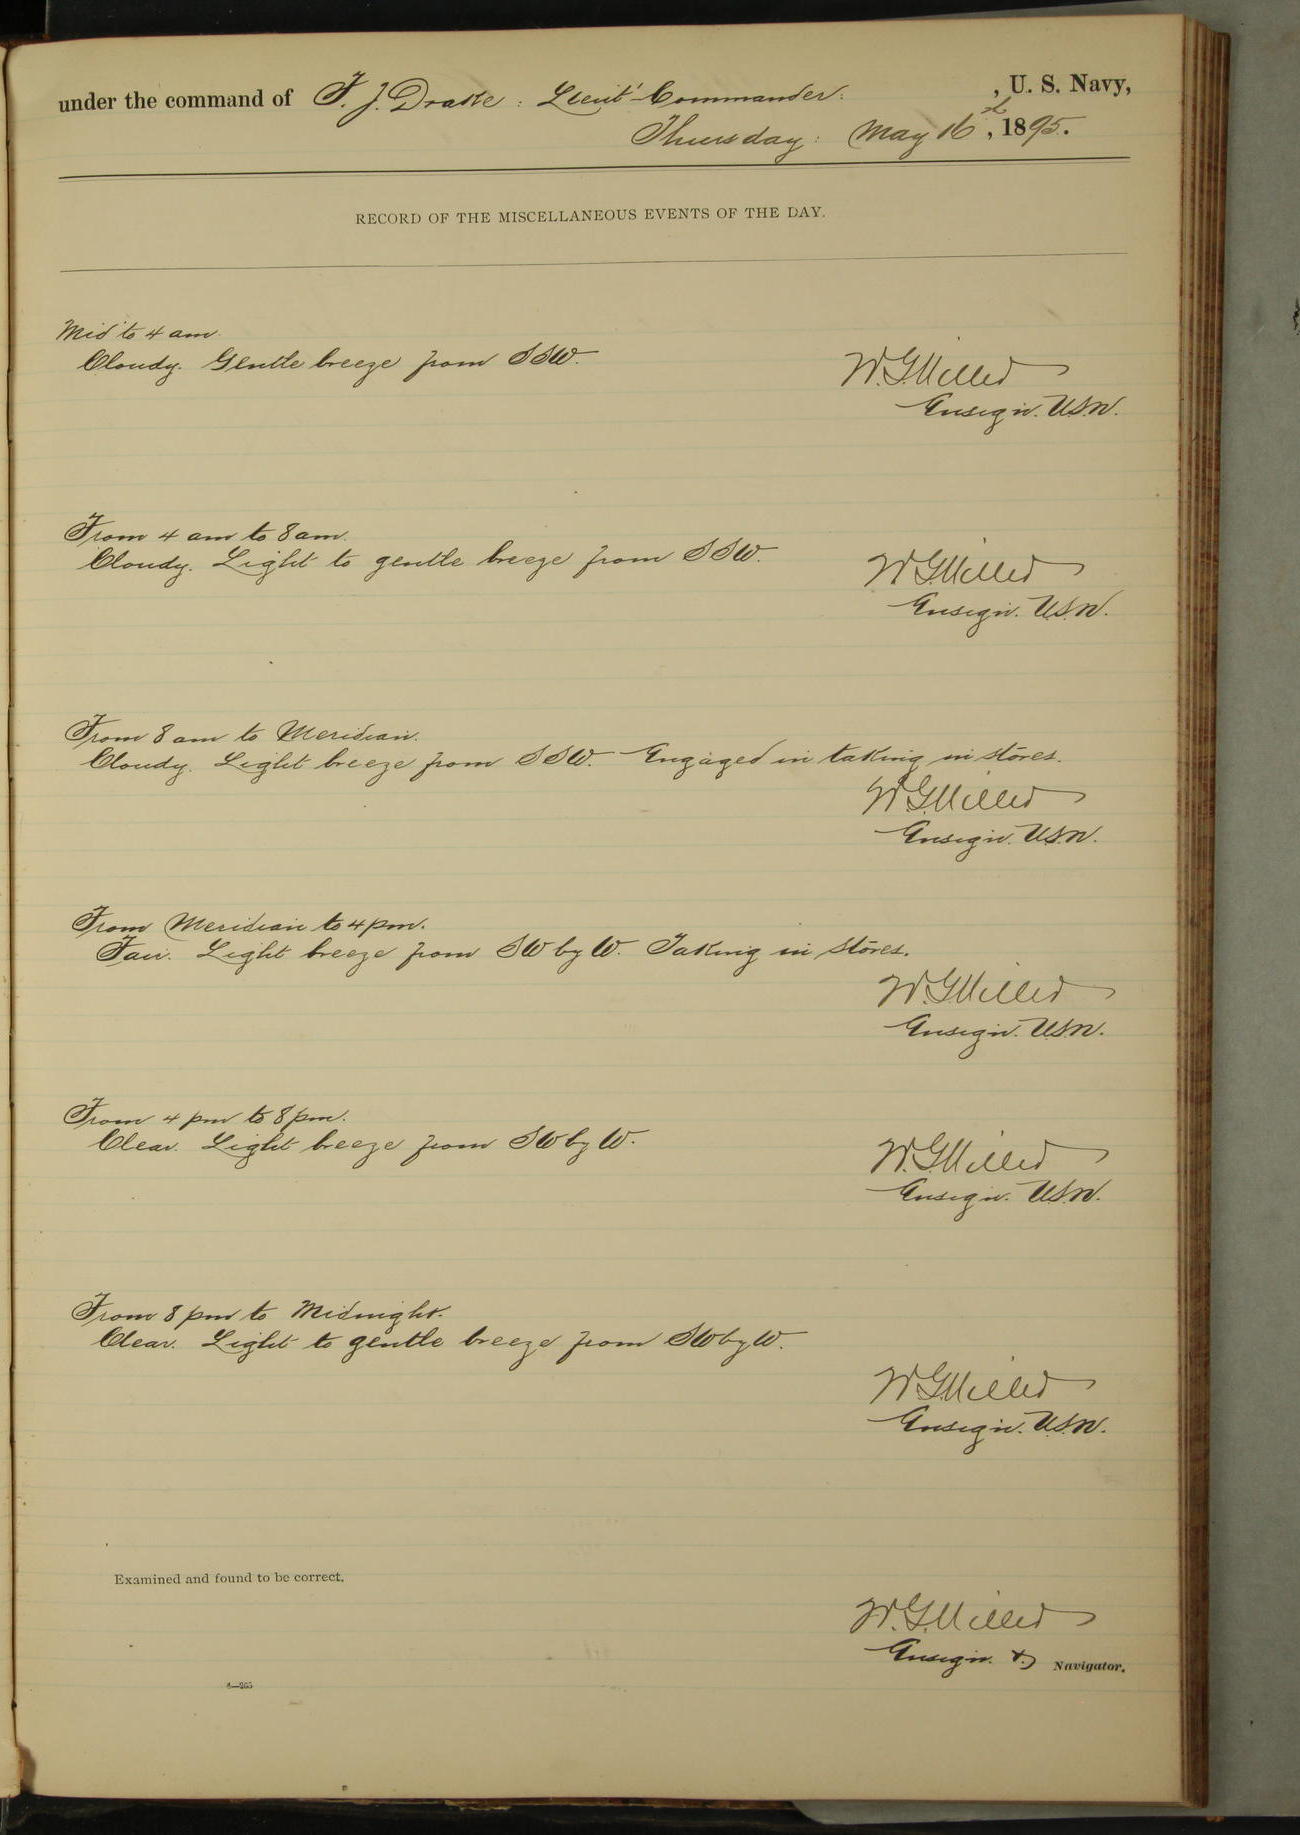 under the command of F. J. Drake : Lieut' Commander. , U. S. Navy,
Thursday : May 16th, 1895.
RECORD OF THE MISCELLANEOUS EVENTS OF THE DAY.
Mid to 4 am.
Cloudy. Gentle breeze from SSW.
W.G. Miller
Ensign. U.S.N.
From 4 am to 8 am.
Cloudy. Light to gentle breeze from SSW.
W.G. Miller
Ensign. U.S.N.
From 8 am to Meridian.
Cloudy. Light breeze from SSW. Engaged in taking in stores.
W.G. Miller
Ensign. U.S.N.
From Meridian to 4 pm.
Fair. Light breeze from SW by W. Taking in stores.
W.G. Miller
Ensign. U.S.N.
From 4 pm to 8 pm.
Clear. Light breeze from SW by W.
W.G. Miller
Ensign. U.S.N.
From 8 pm to Midnight.
Clear. Light to gentle breeze from SW by W.
W.G. Miller
Ensign. U.S.N.
Examined and found to be correct.
W.G. Miller
Ensign. & Navigator.